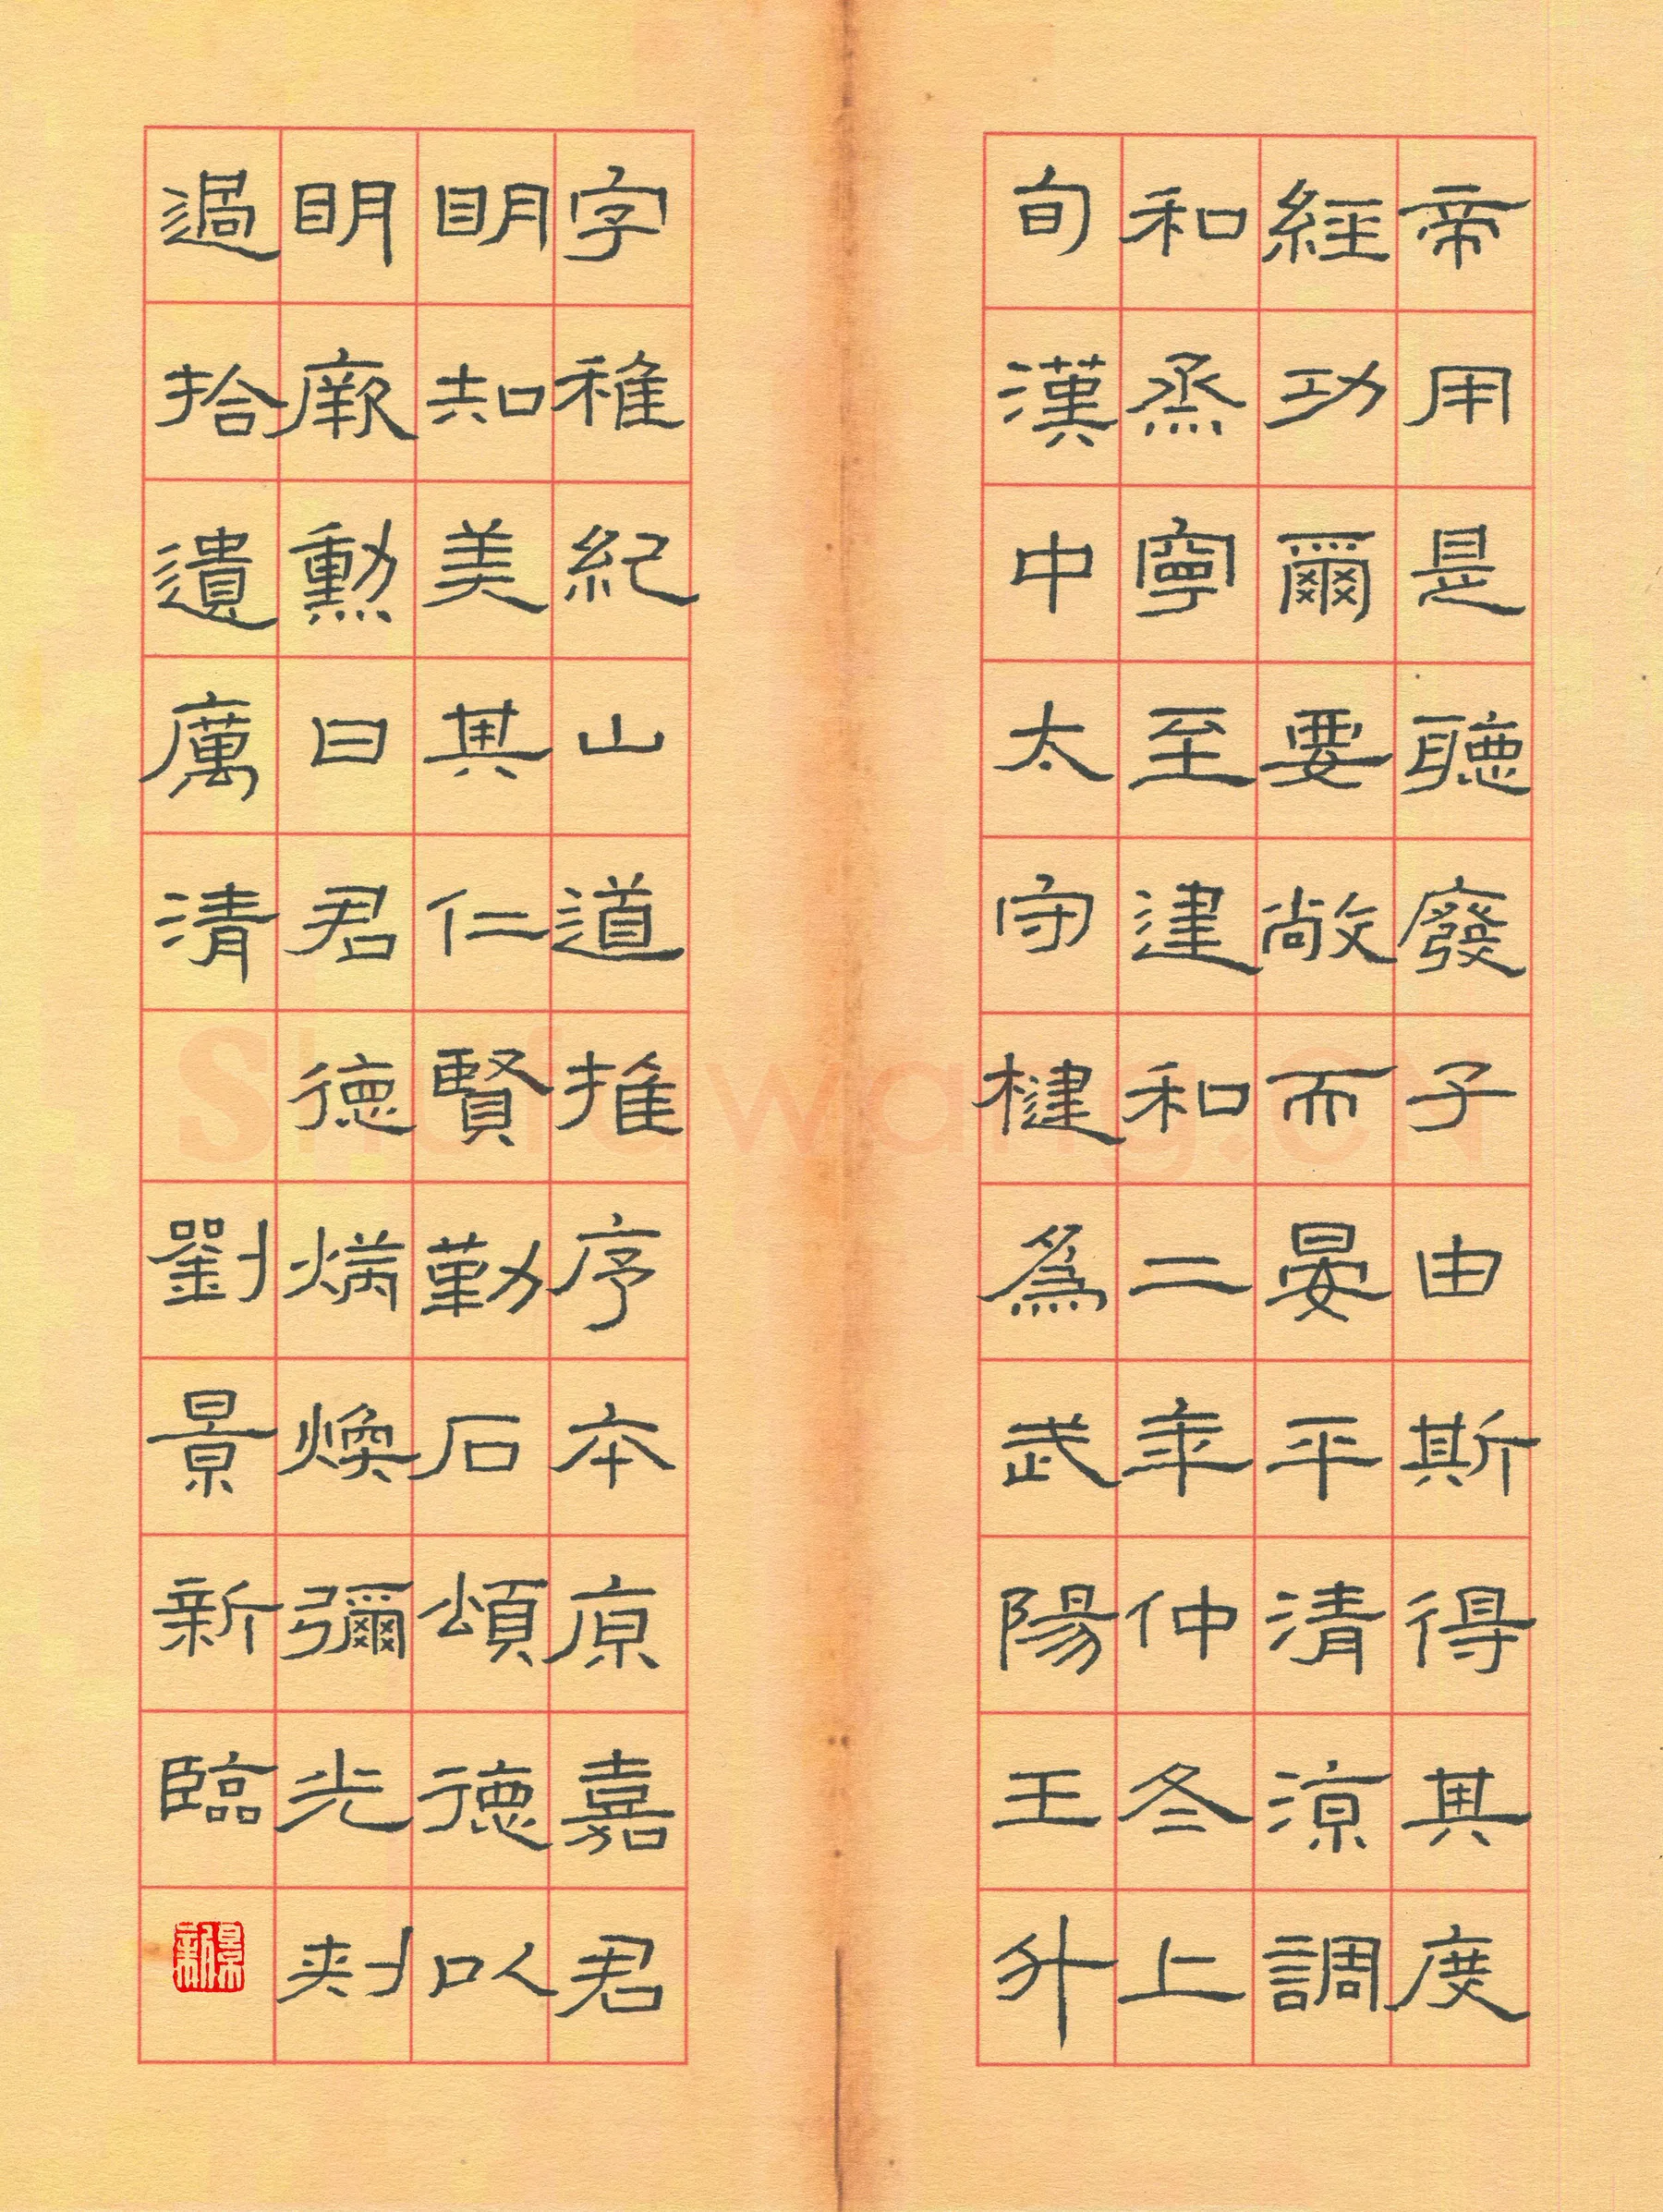 帝用是聽廢子由斯得其度
經功爾要敞而晏平清涼調
和烝寧至建和二年仲冬上
旬漢中太守楗為武陽王升
字稚紀山道推序本原嘉君
明知美其仁賢勤石頌德以
明厥勳曰君德明煥彌光刺
過拾遺厲清
劉景新臨
景新
Shufawang.CN